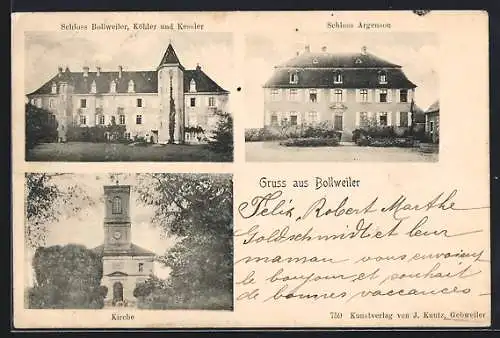 Schloss Bollweiler, Köhler und Kessler
Schloss Argenson
Gruss aus Bollweiler
Félix, Robert Marthe
Goldschmidt et leur
maman vous envoient
le bonjour et souhait
de bonnes vaccances
Kirche
750 Kunstverlag von J. Kuntz, Gebweiler